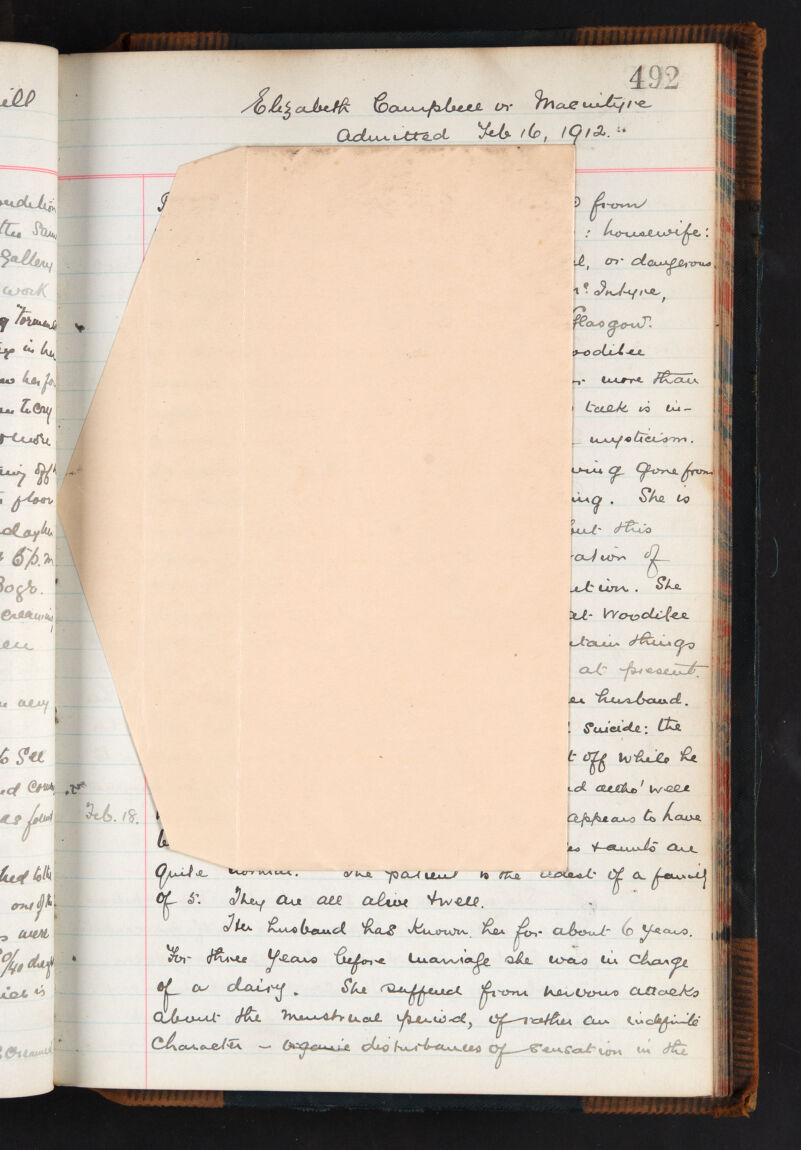 ill
ondition
the Sam
Gallery
work
in he
her fo
to cry
off
floor
day he
5 p.m
Bogr.
very
to See
as found
were
492
Elizabeth Campbell or Macintyre
Admitted Feb 16, 1912.
from
: housewife:
l, or dangerous
Mc Intyre,
Glasgow.
oodilee
more than
talk is in-
mysticism.
ving gone from
ing. She is
but this
ation of
ution. She
at Woodilee
tain things
at present.
er husband.
suicide: the
t off while he
d altho' well
Feb. 18.
appears to have
es + aunts are
quite normal. The patient is the eldest of a family
of 5. They are all alive + well.
Her husband has known her for about 6 years.
For three years before marriage she was in charge
of a dairy. She suffered from nervous attacks
about the menstrual period, of rather an indefinite
character – organic disturbances of sensation in the